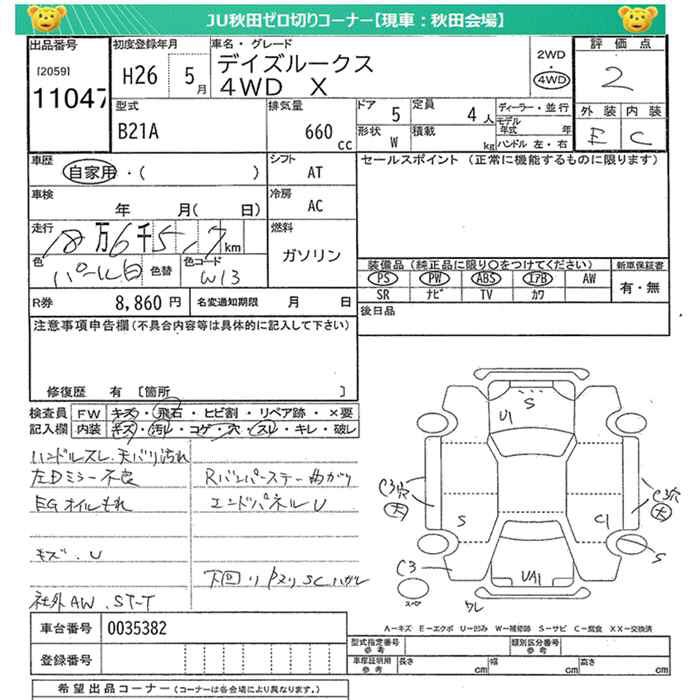 JU秋田ゼロ切りコーナー【現車：秋田会場】
出品番号
[2059]
11047
初度登録年月
H26 5月
車名・グレード
デイズルークス
4WD X
2WD
・
4WD
評価点
2
外装 内装
E C
型式
B21A
排気量
660 cc
ドア 5
定員 4人
形状 W
積載 kg
ディーラー・並行
モデル年式 年
ハンドル 左・右
車歴
自家用・( )
シフト
AT
セールスポイント (正常に機能するものに限ります)
車検
年 月( 日)
冷房
AC
走行
18万6千5 km
燃料
ガソリン
色
パール白
色替
色コード
W13
装備品(純正品に限り○をつけてください)
新車保証書
PS PW ABS エアB AW
SR ナビ TV カワ
有・無
R券 8,860円
名変通知期限 月 日
後日品
注意事項申告欄(不具合内容等は具体的に記入して下さい)
修復歴 有 [箇所 ]
検査員記入欄
FW キズ・飛石・ヒビ割・リペア跡・×要
内装 キズ・汚レ・コゲ・穴・スレ・キレ・破レ
ハンドルスレ.天バリ汚れ
左Dミラー不良
EGオイルもれ
Rバンパーステー曲がり
エンドパネルU
キズ.U
下回り
社外AW.
U1
S
C3穴
大
S
C1
C3穴
大
C3
UA1
S
スペア
ワレ
A－キズ E－エクボ U－凹み W－補修跡 S－サビ C－腐食 XX－交換済
車台番号 0035382
登録番号
型式指定番号
参考
類別区分番号
参考
車庫証明用
参考
長さ cm
幅 cm
高さ cm
希望出品コーナー(コーナーは各会場により異なります。)